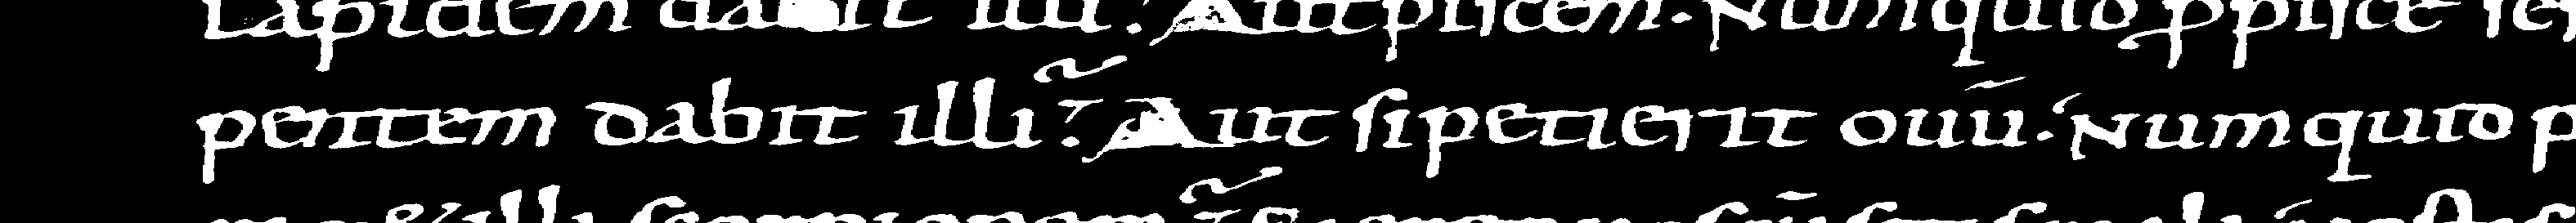 lapidem dabit illi? Aut piscem. Numquid ꝓ pisce ser
pentem dabit illi? Aut si petierit ouū. Numquid p